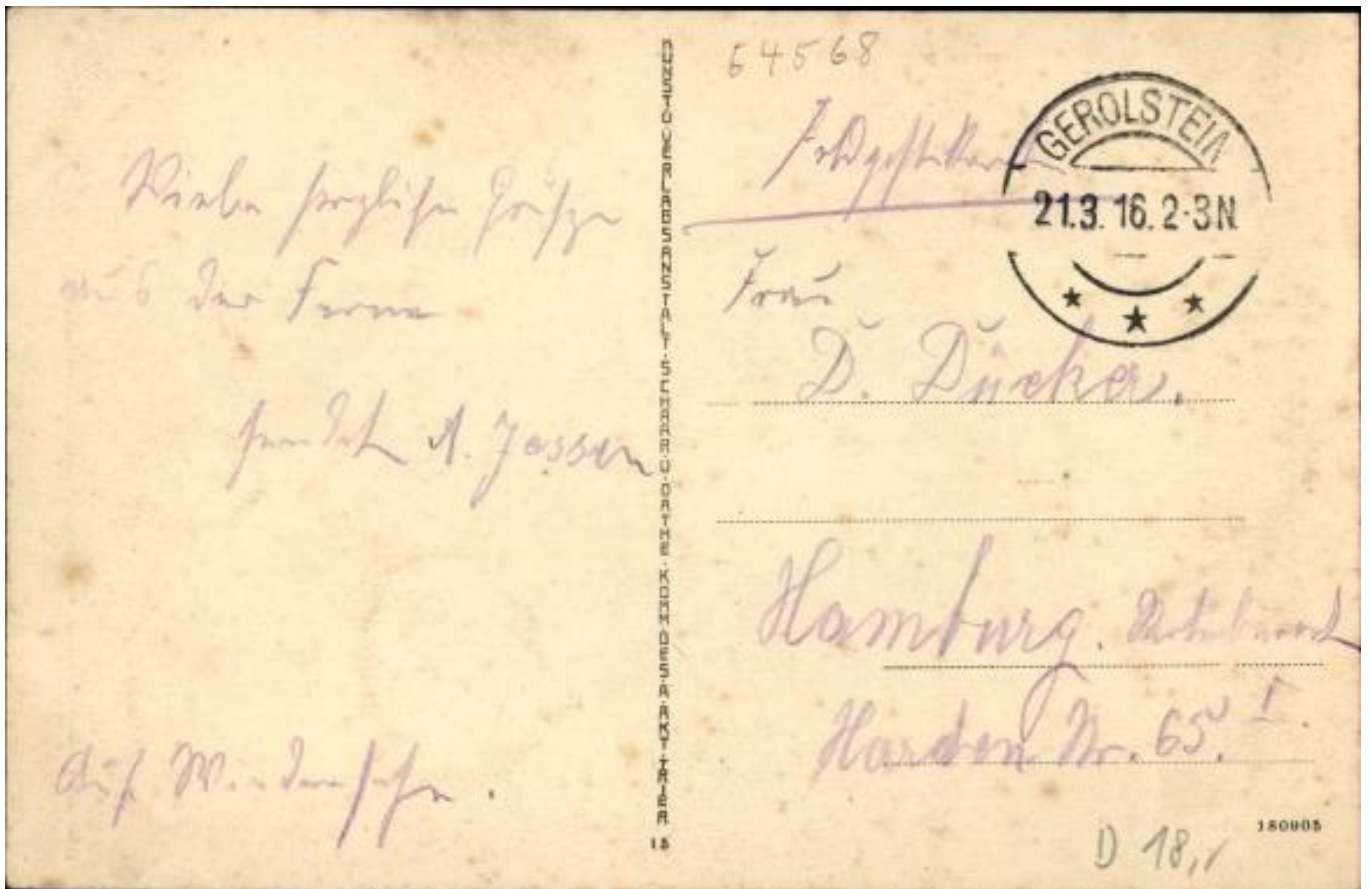 Viele herzliche Grüße
aus der Ferne
sendet A. Jossen
Auf Wiedersehn.
KUNST U. VERLAGSANSTALT · SCHAAR · U · DATHE · KOMM · GES · A · AKT · TRIER
15
64568
Feldpostkarte
GEROLSTEIN
21.3.16. 2-3N.
Frau
D. Dücker.
Hamburg.
Nr. 65. I.
180905
D 18,-